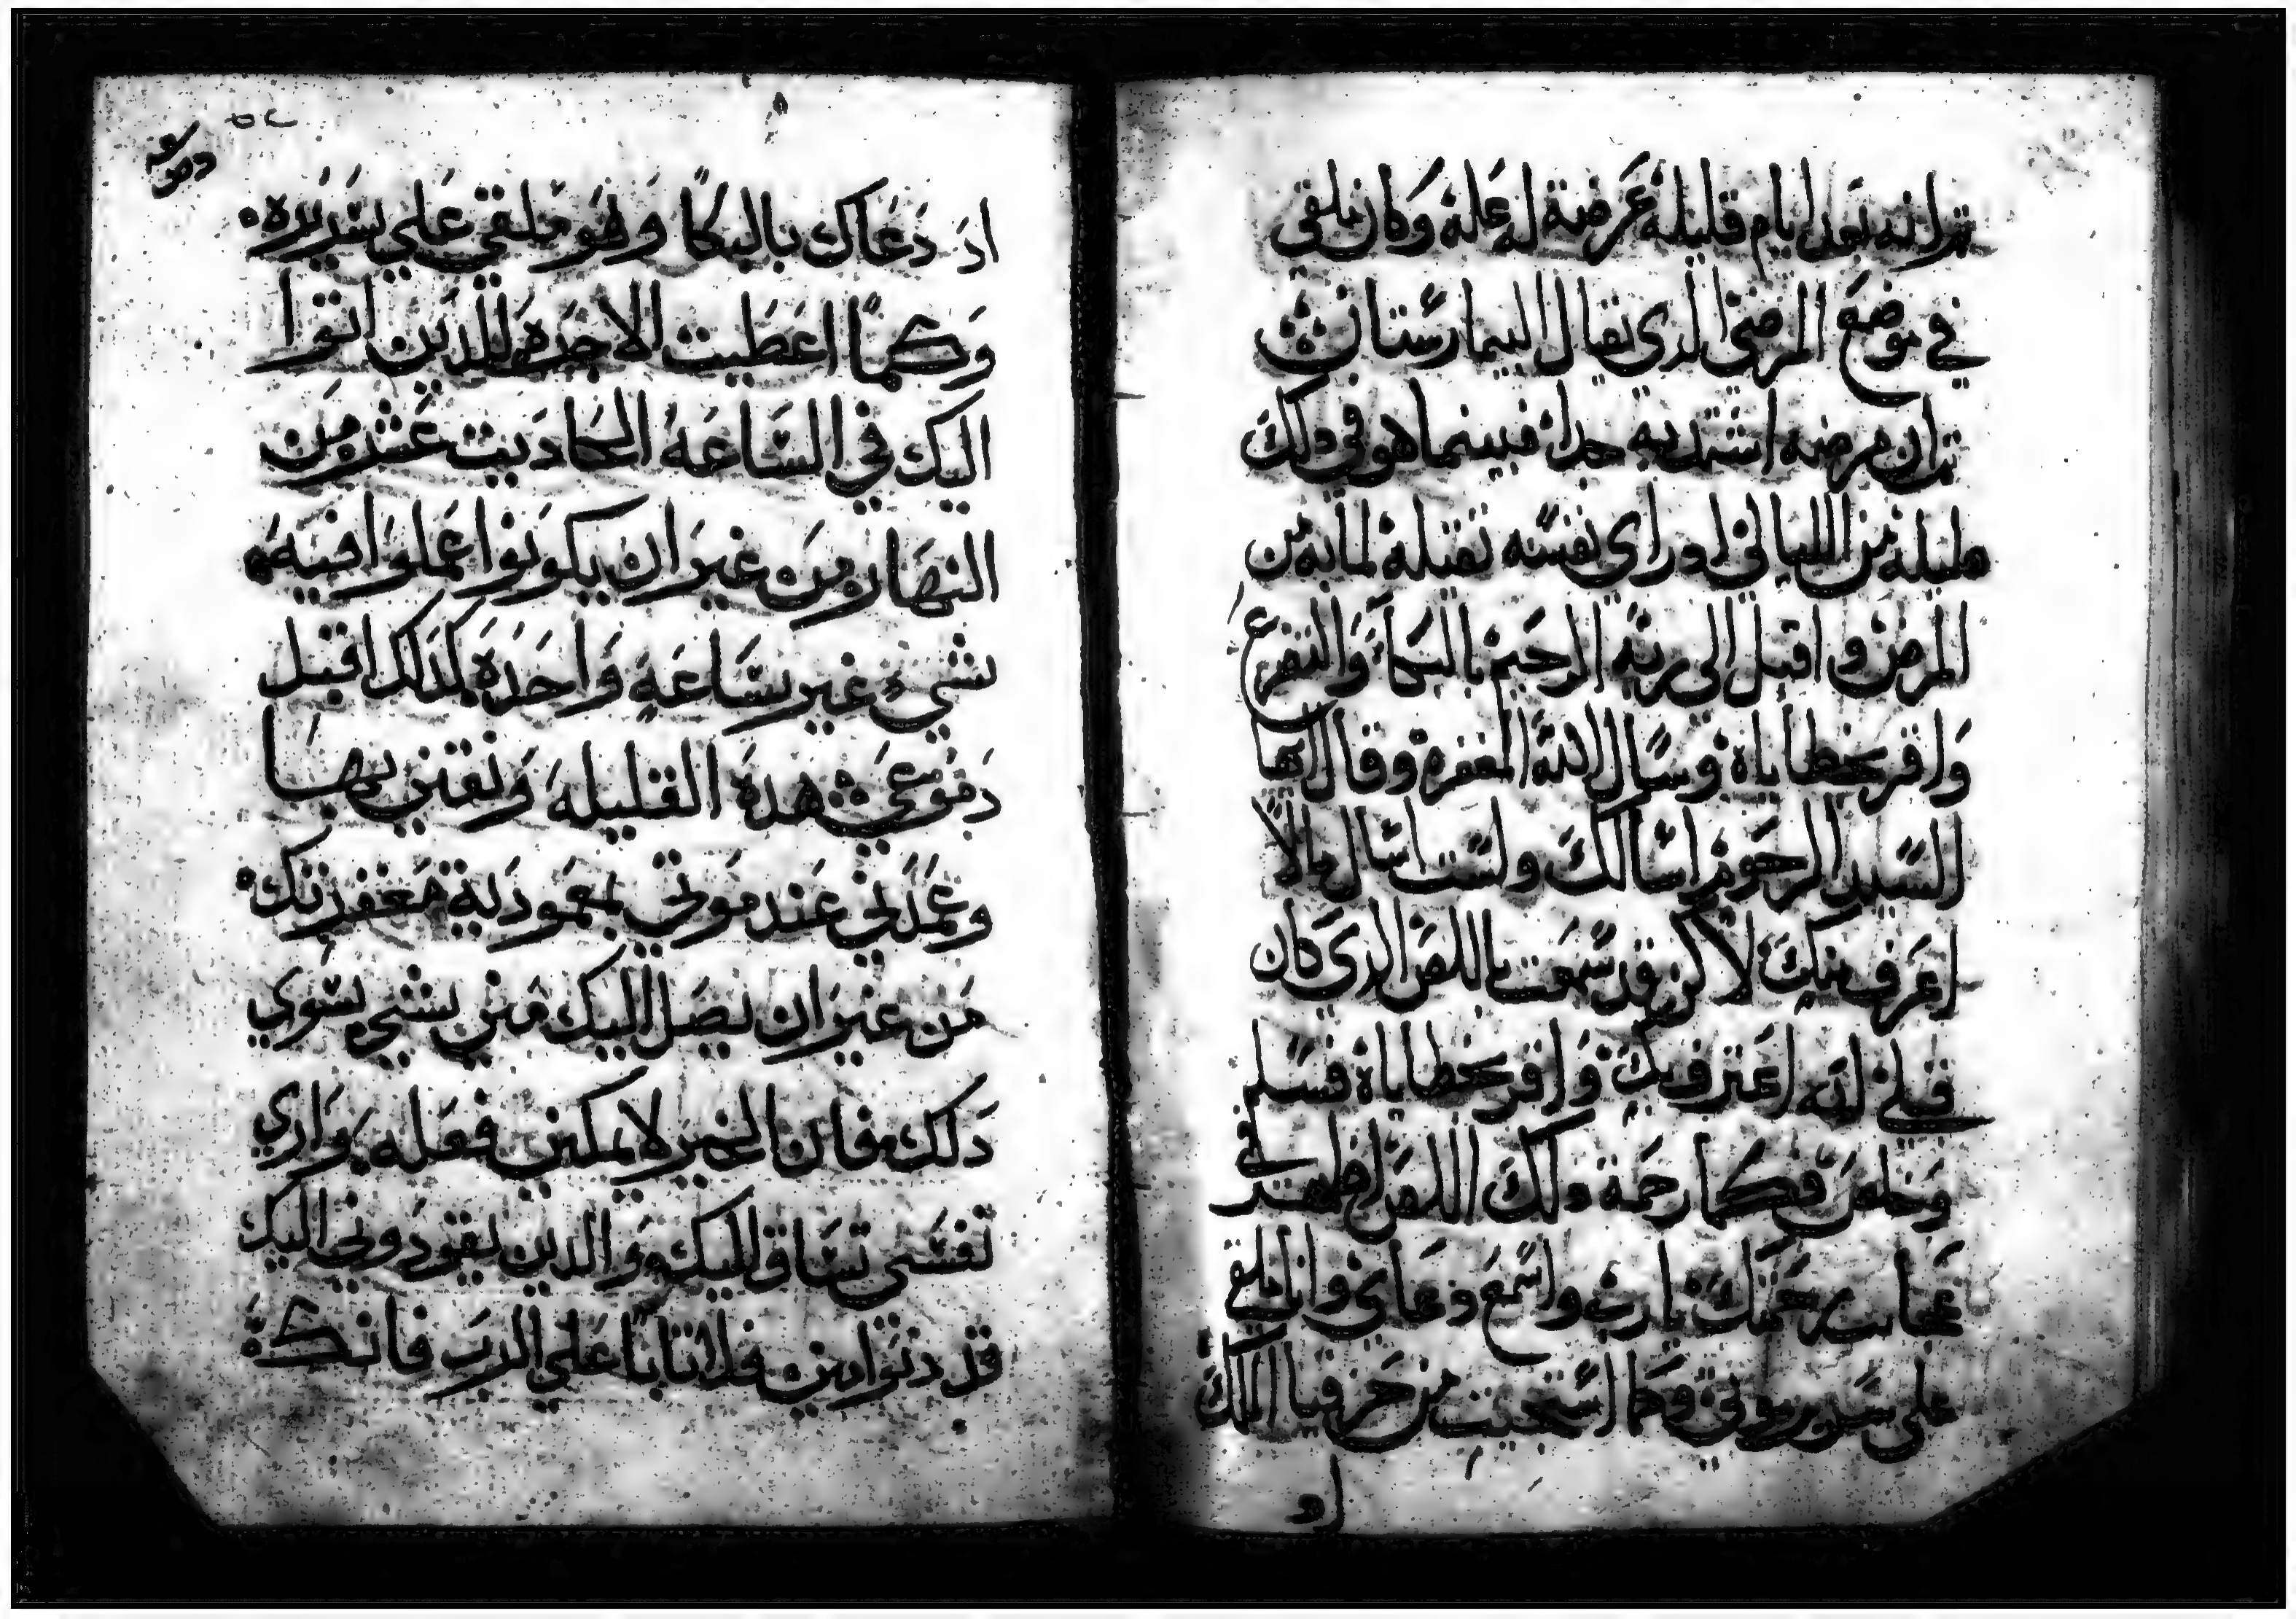 ثم انه بعد ايام قليله عرضة له علة وكان ملقي
في موضع المرضي الذي يقال البيمارستان
ثم ان مرضه اشتد به جدا فبينما هو في ذلك
ليله من الليالي اد راي نفسه ثقيلة لما به من
المرض و اقبل الى ربه الرحيم بالبكاء والتضرع
وَاقر بخطاياه وسال الله المغفرة وقال ايها
السيد الرحوم اسالك ولست اسال مالا
اعرف منك لاكن قد سمعت باللص الدي كان
قبلي انه اعترف بك وَاقر بخطاياه فسلم
وَخلص فكما رحمة دلك اللص اظهر في
عجايب رحمتك يا رب واسمع دعاي وانا ملقي
على سرير موتي وكما استجبت من حزقيا الملك
اد
دموعه
اد دَعَاك بالبكا وهو ملقي علي سريره
وَكما اعطيت الاجرَة للدين اتوا
اليك في السَاعَة الحاديت عشر من
النهار من غير ان يكونوا عملوا فيه
شي غير سَاعَة وَاحدَة كدلك اقبل
دموعي هدة القليلة وَنقني بها
وعمدني عند موتي بمعمودية مغفرتك
من غير ان يصل اليك مني شي سوي
دَلك فان الخير لا يمكني فعله وَاري
نفسي تساق اليك وَالدين يقودوني اليك
قد دنوا مني فلا تابا علي الرب فانك